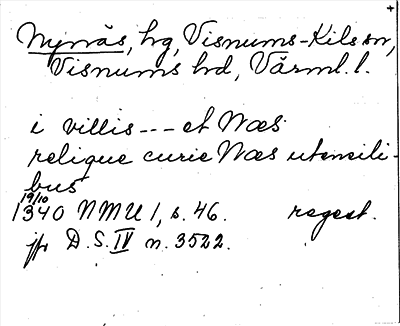 Nynäs, hg, Visnums-Kils sn,
Visnums hd, Värml. l.
i villis --- et Næs
relique curie Næs utensili-
bus
19/10
1340 NMU 1, s. 46. regest.
jfr D.S. IV n. 3522.